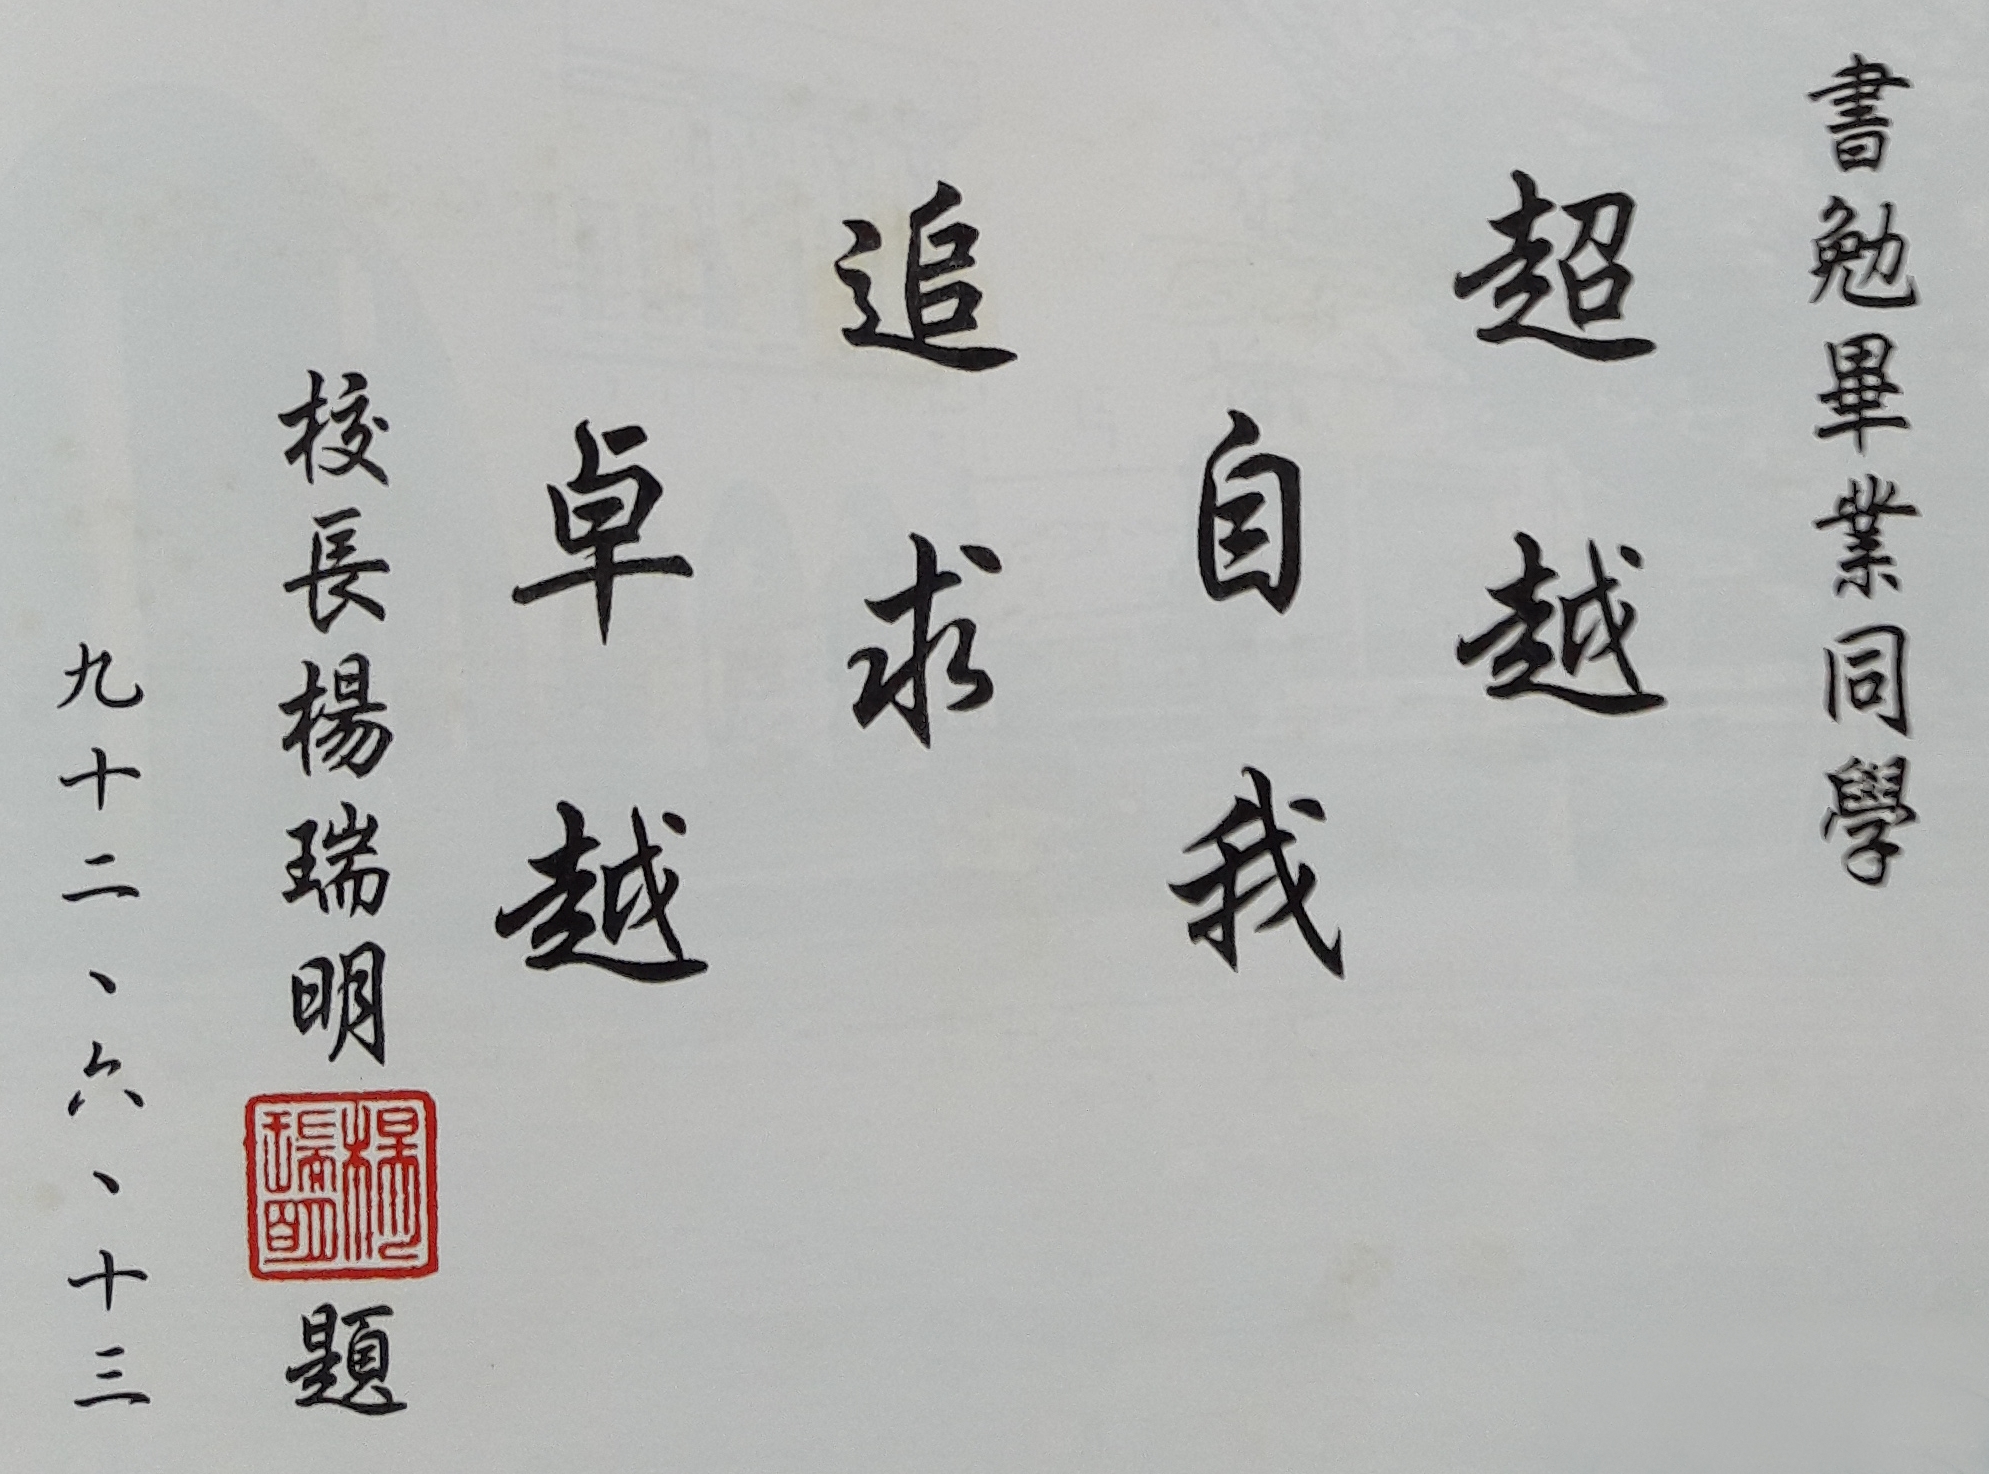 書勉畢業同學
超越
自我
追求
卓越
校長楊瑞明
楊瑞明
題
九十二、六、十三